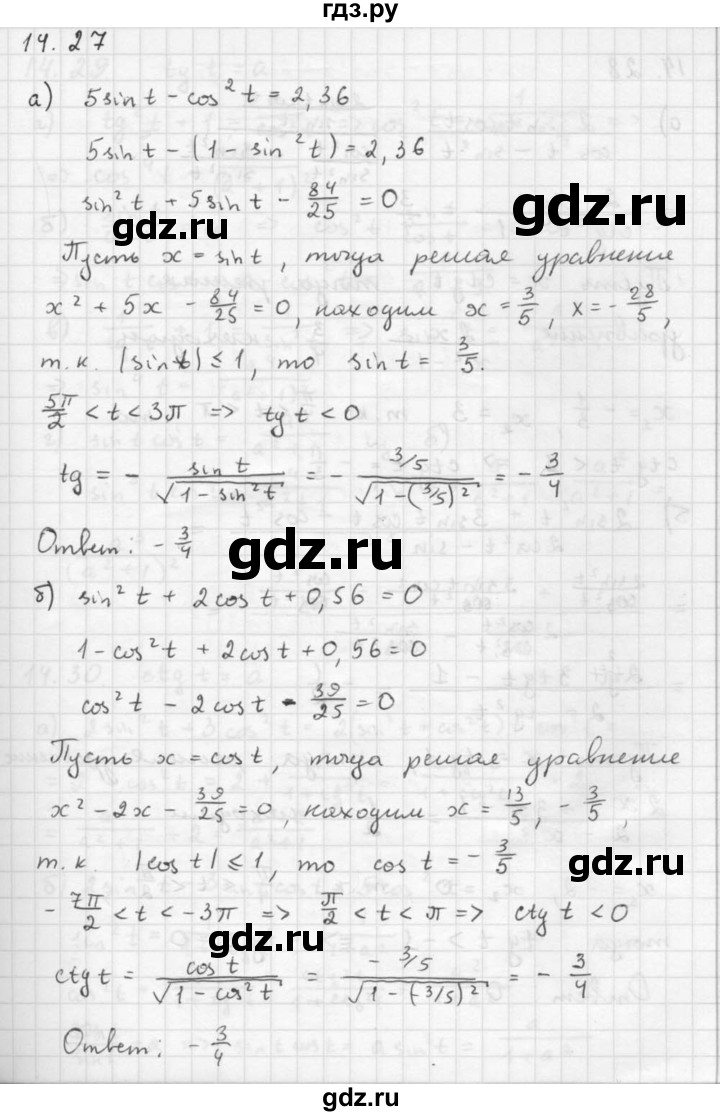 гдз.ру
14.27
а) 5sin t - cos²t = 2,36
5sin t - (1 - sin²t) = 2,36
sin²t + 5sin t - 84/25 = 0
gdz.ru
Пусть x = sin t, тогда решая уравнение
x² + 5x - 84/25 = 0, находим x = 3/5, x = - 28/5,
т.к. |sin t| ≤ 1, то sin t = 3/5.
5π/2 < t < 3π => tg t < 0
tg = - sin t/√(1 - sin²t) = - (3/5)/√(1 - (3/5)²) = - 3/4
Ответ: - 3/4
gdz.ru
б) sin²t + 2cos t + 0,56 = 0
1 - cos²t + 2cos t + 0,56 = 0
cos²t - 2cos t - 39/25 = 0
Пусть x = cos t, тогда решая уравнение
x² - 2x - 39/25 = 0, находим x = 13/5, - 3/5,
т.к. |cos t| ≤ 1, то cos t = - 3/5
gdz.ru
- 7π/2 < t < -3π => π/2 < t < π => ctg t < 0
gdz.ru
ctg t = cos t/√(1 - cos²t) = (- 3/5)/√(1 - (-3/5)²) = - 3/4
Ответ: - 3/4
gdz.ru